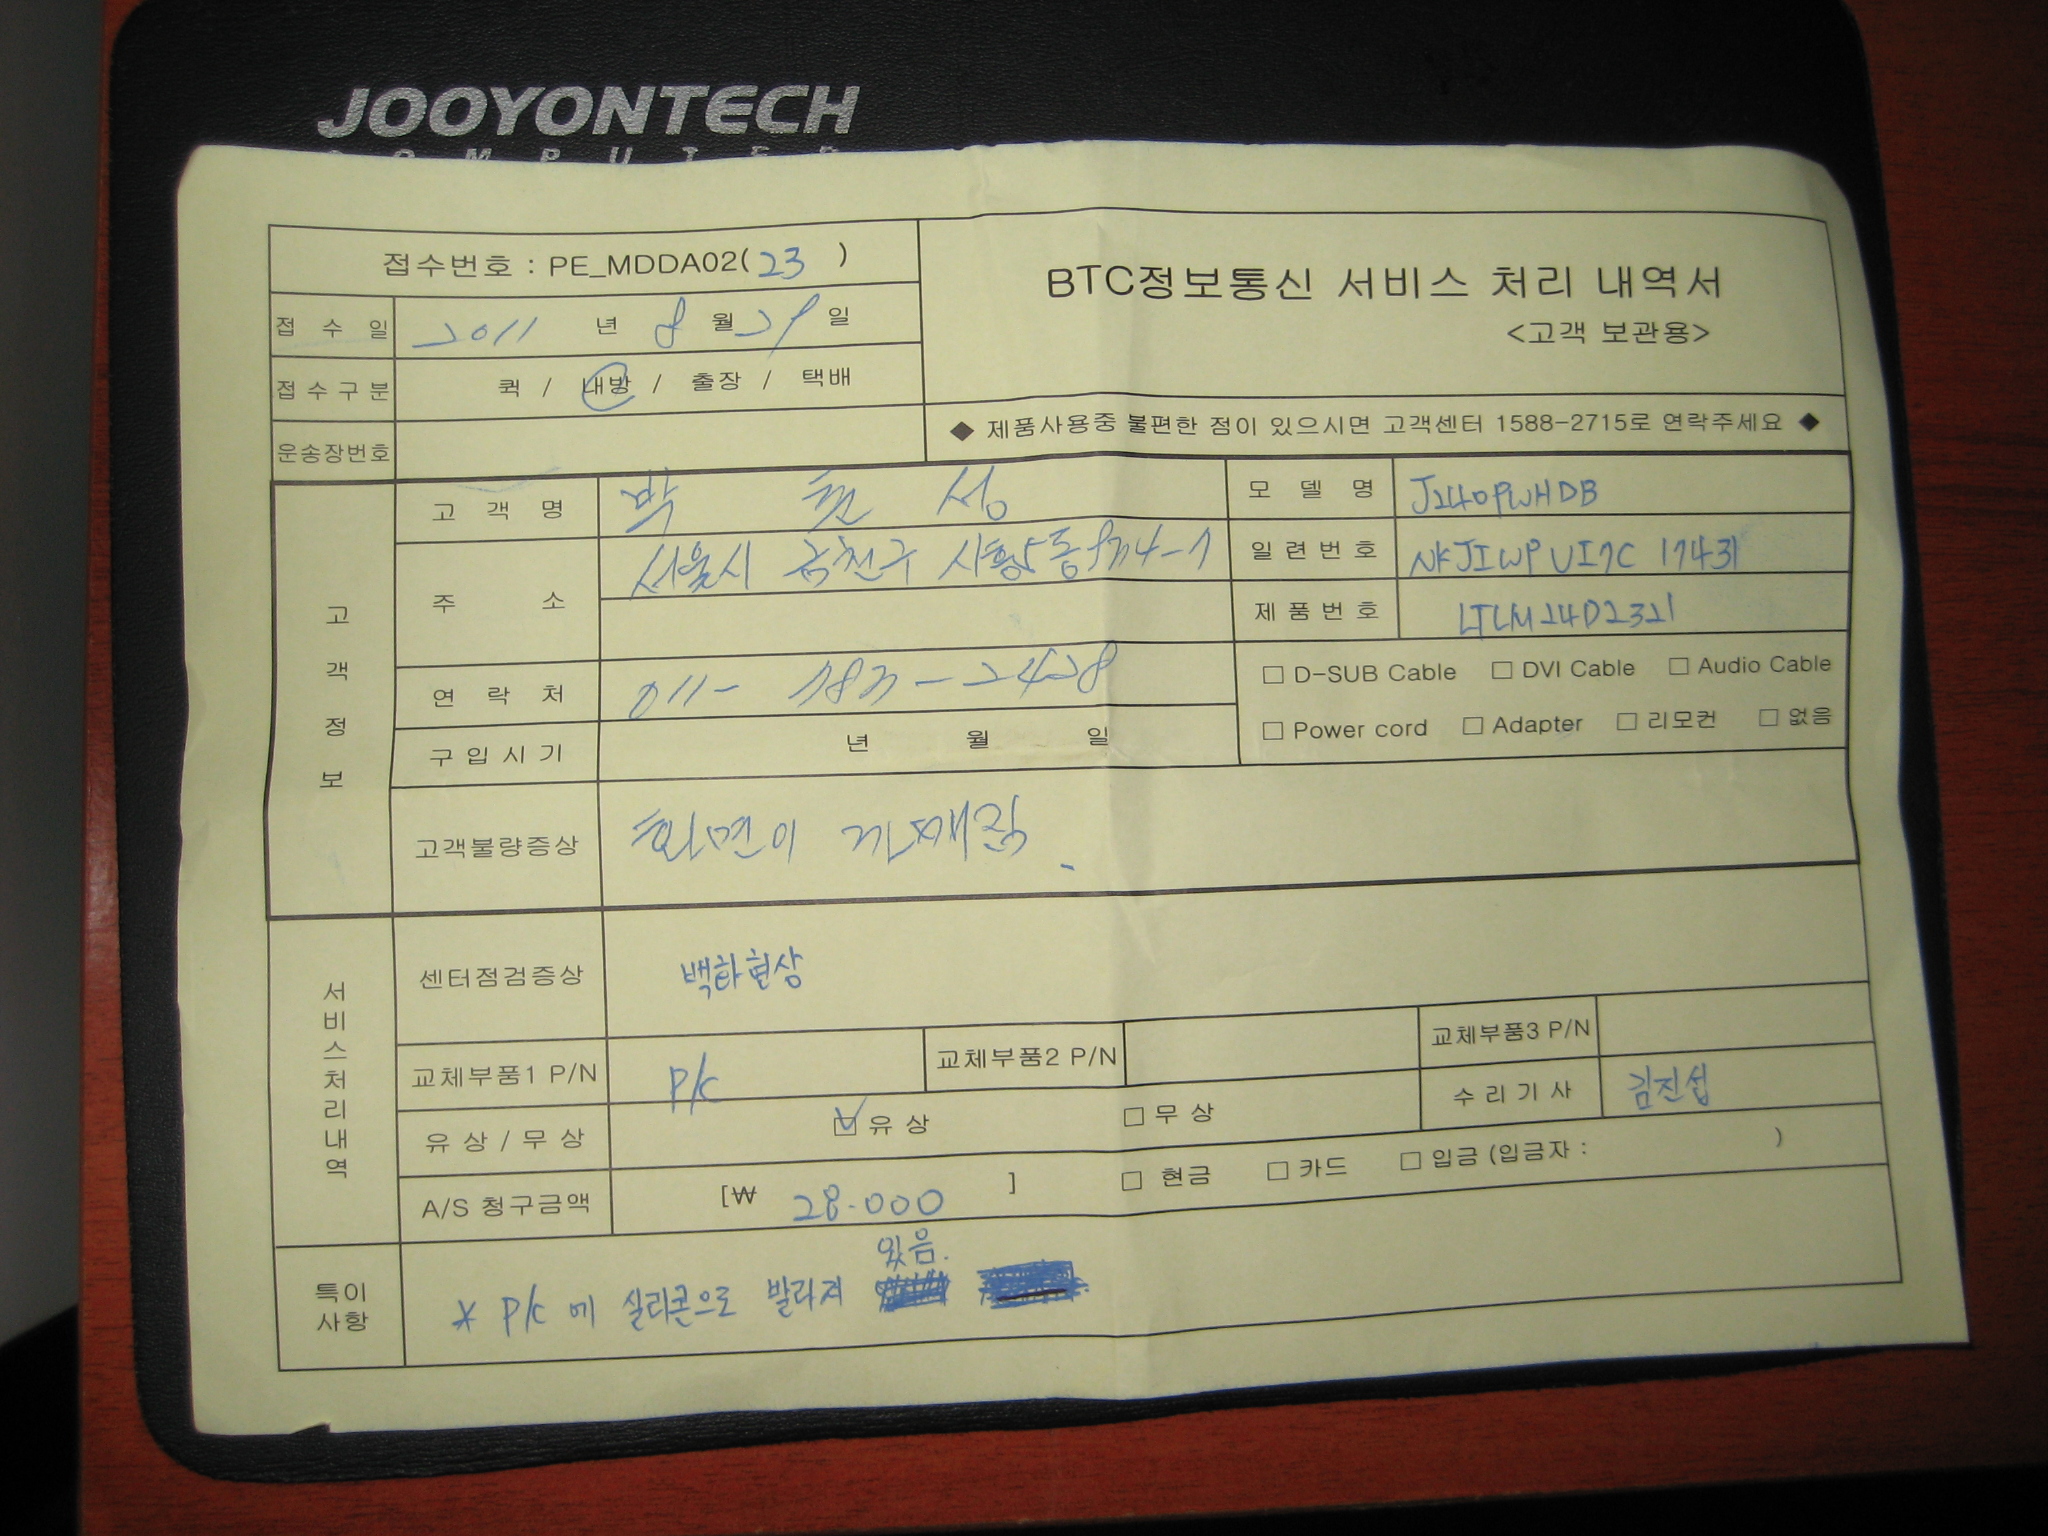 JOOYONTECH
COMPUTER
접수번호 : PE_MDDA02(23 )
BTC정보통신 서비스 처리 내역서
<고객 보관용>
접 수 일 2011 년 8 월 29 일
접수구분 퀵 / 내방 / 출장 / 택배
◆ 제품사용중 불편한 점이 있으시면 고객센터 1588-2715로 연락주세요 ◆
운송장번호
고객정보
고 객 명 박 성
모 델 명 J240PWHDB
주 소 서울시 금천구 시흥5동
일련번호 17431
제품번호 LTLM24D2321
연 락 처 011-783-2428
□ D-SUB Cable □ DVI Cable □ Audio Cable
□ Power cord □ Adapter □ 리모컨 □ 없음
구입시기 년 월 일
고객불량증상 화면이
서비스처리내역
센터점검증상 백화현상
교체부품1 P/N P/C 교체부품2 P/N 교체부품3 P/N
유상/무상 ☑ 유상 □ 무상 수리기사 김진섭
A/S 청구금액 [₩ 28.000 ] □ 현금 □ 카드 □ 입금 (입금자 : )
특이사항 * P/C 에 실리콘으로 발라져 있음.